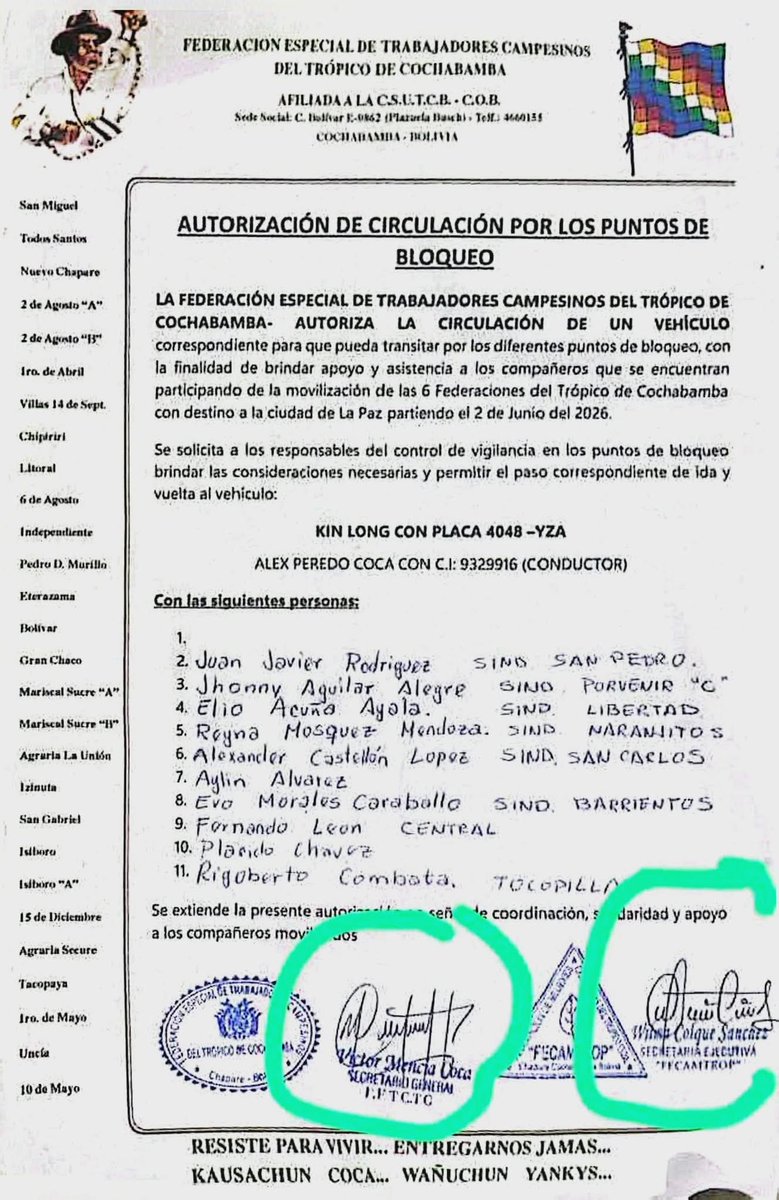 FEDERACION ESPECIAL DE TRABAJADORES CAMPESINOS
DEL TRÓPICO DE COCHABAMBA
AFILIADA A LA C.S.U.T.C.B. - C.O.B.
Sede Social: C. Bolívar E-0862 (Plazuela Busch) - Telf.: 4660135
COCHABAMBA - BOLIVIA
San Miguel
Todos Santos
Nuevo Chapare
2 de Agosto "A"
2 de Agosto "B"
1ro. de Abril
Villas 14 de Sept.
Chipiriri
Litoral
6 de Agosto
Independiente
Pedro D. Murillo
Eterazama
Bolívar
Gran Chaco
Mariscal Sucre "A"
Mariscal Sucre "B"
Agraria La Unión
Izinuta
San Gabriel
Isiboro
Isiboro "A"
15 de Diciembre
Agraria Secure
Tacopaya
1ro. de Mayo
Uncía
10 de Mayo
AUTORIZACIÓN DE CIRCULACIÓN POR LOS PUNTOS DE
BLOQUEO
LA FEDERACIÓN ESPECIAL DE TRABAJADORES CAMPESINOS DEL TRÓPICO DE
COCHABAMBA- AUTORIZA LA CIRCULACIÓN DE UN VEHÍCULO
correspondiente para que pueda transitar por los diferentes puntos de bloqueo, con
la finalidad de brindar apoyo y asistencia a los compañeros que se encuentran
participando de la movilización de las 6 Federaciones del Trópico de Cochabamba
con destino a la ciudad de La Paz partiendo el 2 de Junio del 2026.
Se solicita a los responsables del control de vigilancia en los puntos de bloqueo
brindar las consideraciones necesarias y permitir el paso correspondiente de ida y
vuelta al vehículo:
KIN LONG CON PLACA 4048 –YZA
ALEX PEREDO COCA CON C.I: 9329916 (CONDUCTOR)
Con las siguientes personas:
1.
2. Juan Javier Rodriguez SIND SAN PEDRO.
3. Jhonny Aguilar Alegre SIND PORVENIR "C"
4. Elio Acuña Ayala. SIND. LIBERTAD
5. Reyna Mosquez Mendoza. SIND. NARANJITOS
6. Alexander Castellón Lopez SIND. SAN CARLOS
7. Aylin Alvarez
8. Evo Morales Caraballo SIND. BARRIENTOS
9. Fernando Leon CENTRAL
10. Placido Chavez
11. Rigoberto Combata. TOCOPILLA
Se extiende la presente en señal de coordinación, y apoyo
a los compañeros
FEDERACIÓN ESPECIAL DE TRABAJADORES CAMPESINOS
DEL TRÓPICO DE COCHABAMBA
Chapare - Bolivia
Victor Mencia Coca
SECRETARIO GENERAL
F.E.T.C.T.C
"FECAMTROP"
Wilma Colque Sanchez
SECRETARIA EJECUTIVA
"FECAMTROP"
RESISTE PARA VIVIR... ENTREGARNOS JAMAS...
KAUSACHUN COCA... WAÑUCHUN YANKYS...